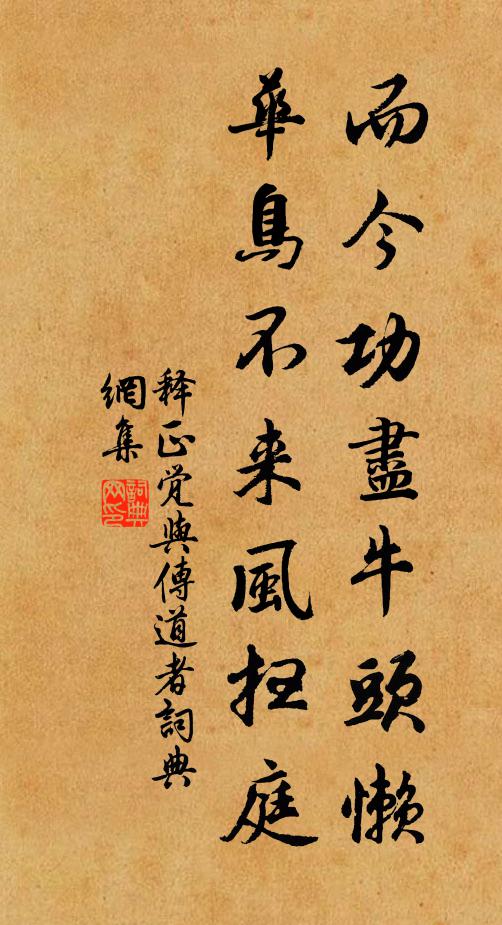 而今功盡牛頭懶
華鳥不来風扫庭
释正觉與傳道者詞典
網集
詞典
网印